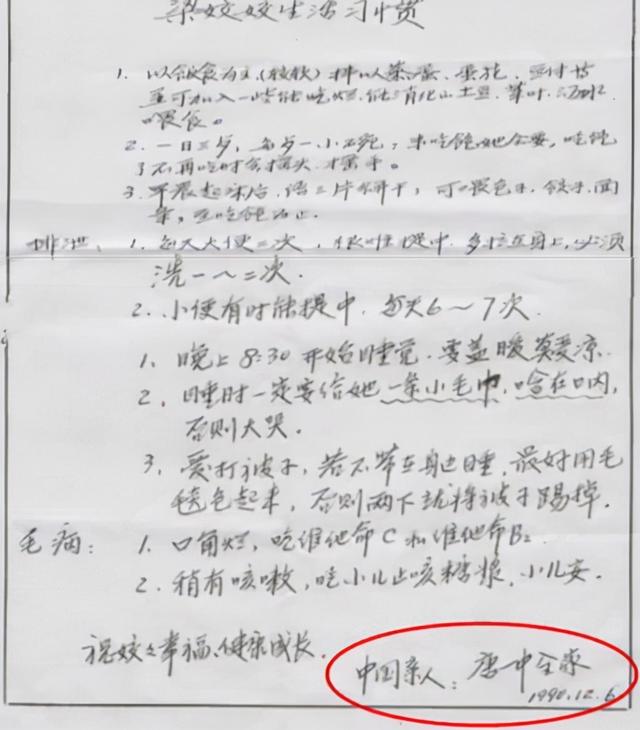 梁姣姣生活习惯
1. 以饭食为主(较软)拌以蒸蛋、蛋花、
可加入一些能吃烂、能消化的土豆、菜叶
喂食。
2. 一日三歺,每歺一小碗,未吃饱她会要,吃饱
了不再吃时会摇头、摆手。
3. 早晨起床后,语二片饼干,可以喂包子、饺子、面
条,至吃饱为止。
排泄、 1. 每天大便二次,很难提中,多拉在身上,必须
洗一~二次.
2. 小便有时能提中,每天6~7次.
1. 晚上8:30开始睡觉.要盖暖莫受凉.
2. 睡时一定要给她一条小毛巾,啥在口内,
否则大哭.
3. 爱打被子,若不带在身边睡,最好用毛
毯包起来,否则两下就将被子踢掉.
毛病: 1. 口角烂,吃维他命C和维他命B₂
2. 稍有咳嗽,吃小儿止咳糖浆,小儿安.
祝姣姣幸福、健康成长.
中国亲人:唐中全家
1990.12.6